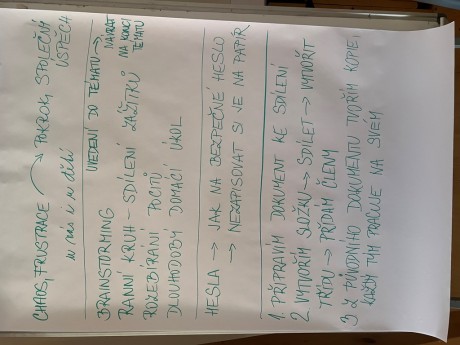 CHAOS, FRUSTRACE → POKROK, SPOLEČNÝ ÚSPĚCH
u nás i u dětí
UVEDENÍ DO TÉMATU → NÁVRAT NA KONCI TÉMATU
BRAINSTORMING
RANNÍ KRUH – SDÍLENÍ ZÁŽITKŮ
ROZEBÍRÁNÍ POCITŮ
DLOUHODOBÝ DOMÁCÍ ÚKOL
HESLA → JAK NA BEZPEČNÉ HESLO
→ NEZAPISOVAT SI JE NA PAPÍR
1. PŘIPRAVÍM DOKUMENT KE SDÍLENÍ
2 VYTVOŘÍM SLOŽKU → SDÍLET → VYTVOŘIT
TŘÍDU → PŘIDÁM ČLENY
3 Z PŮVODNÍHO DOKUMENTU TVOŘÍM KOPIE,
KAŽDÝ TÝM PRACUJE NA SVÉM